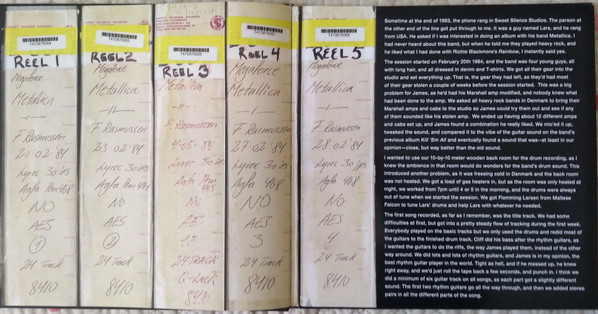 REEL 1
Megaforce
Metallica
F Rasmussen
20 02 '84
Lyrec 30 ips
Agfa Pem 468
NO
AES
1
24 Track
8410
REEL 2
Megaforce
Metallica
F Rasmussen
23 02 '84
Lyrec 30 ips
Agfa Pem 468
NO
AES
2
24 Track
8410
REEL 3
Metallica
F Rasmussen
Lyrec 30 ips
Agfa Pem
NO
24 TRACK
REEL 4
Megaforce
Metallica
F Rasmussen
27 02 '84
Lyrec 30 ips
Agfa Pem 468
NO
AES
3
24 Track
8410
REEL 5
Megaforce
Metallica
F Rasmussen
28 02 '84
Lyrec 30 ips
Agfa 468
NO
AES
4
24 Track
8410
Sometime at the end of 1983, the phone rang in Sweet Silence Studios. The person at
the other end of the line got put through to me. It was a guy named Lars, and he rang
from USA. He asked if I was interested in doing an album with his band Metallica. I
had never heard about this band, but when he told me they played heavy rock, and
he liked what I had done with Richie Blackmore's Rainbow, I instantly said yes.
The session started on February 20th 1984, and the band was four young guys, all
with long hair, and all dressed in denim and T-shirts. We got all their gear into the
studio and set everything up. That is, the gear they had left, as they'd had most
of their gear stolen a couple of weeks before the session started. This was a big
problem for James, as he'd had his Marshall amp modified, and nobody knew what
had been done to the amp. We asked all heavy rock bands in Denmark to bring their
Marshall amps and cabs to the studio so James could try them out and see if any
of them sounded like his stolen amp. We ended up having about 12 different amps
and cabs set up, and James found a combination he really liked. We mic'ed it up,
tweaked the sound, and compared it to the vibe of the guitar sound on the band's
previous album Kill 'Em All and eventually found a sound that was—at least in our
opinion—close, but way better than the old sound.
I wanted to use our 10-by-10 meter wooden back room for the drum recording, as I
knew the ambience in that room would do wonders for the band's drum sound. This
introduced another problem, as it was freezing cold in Denmark and the back room
was not heated. We got a load of gas heaters in, but as the room was only heated at
night, we worked from 7pm until 4 or 5 in the morning, and the drums were always
out of tune when we started the session. We got Flemming Larsen from Maltese
Falcon to tune Lars' drums and help Lars with whatever he needed.
The first song recorded, as far as I remember, was the title track. We had some
difficulties at first, but got into a pretty steady flow of tracking during the first week.
Everybody played on the basic tracks but we only used the drums and redid most of
the guitars to the finished drum track. Cliff did his bass after the rhythm guitars, as
I wanted the guitars to do the riffs, the way James played them, instead of the other
way around. We did lots and lots of rhythm guitars, and James is in my opinion, the
best rhythm guitar player in the world. Tight as hell, and if he messed up, he knew
right away, and we'd just roll the tape back a few seconds, and punch in. I think we
did a minimum of six guitar track on all songs, as each part got a slightly different
sound. The first two rhythm guitars go all the way through, and then we added stereo
pairs in all the different parts of the song.